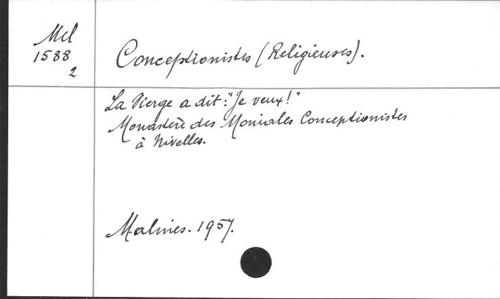 Mel
1588
2
Conceptionistes (Religieuses).
La Vierge a dit: "Je veux!"
Monastère des Moniales Conceptionistes
à Nivelles.
Malines. 1957.